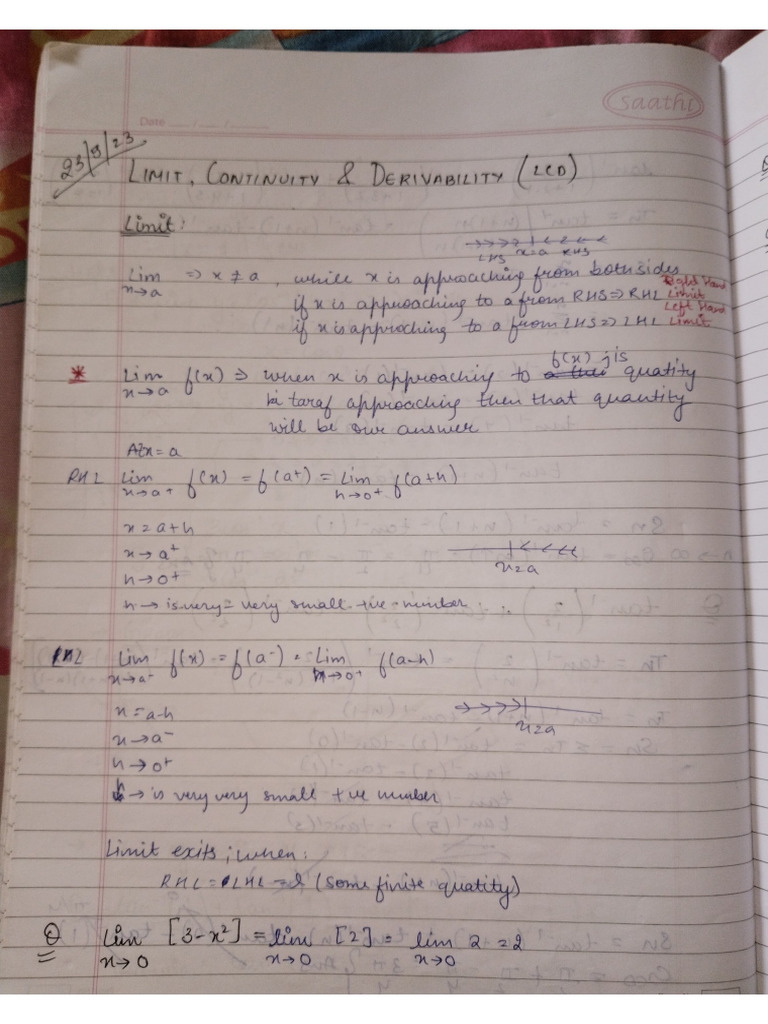 saathi
Date ___/___/___
23/9/23
LIMIT, CONTINUITY & DERIVABILITY (LCD)
Limit:
LHS x=a RHS
Lim x→a ⇒ x ≠ a, while x is approaching from both sides
if x is approaching to a from RHS ⇒ RHL Right Hand Limit
if x is approching to a from LHS ⇒ LHL Left Hand Limit
* Lim x→a f(x) ⇒ when x is approaching to f(x) jis quatity
ki taraf approaching then that quantity
will be our answer
At x = a
RHL Lim x→a+ f(x) = f(a+) = Lim h→0+ f(a+h)
x = a+h
x → a+
x=a
h → 0+
h → is very = very small +ve number
LHL Lim x→a- f(x) = f(a-) = Lim h→0+ f(a-h)
x = a-h
x=a
x → a-
h → 0+
h → is very very small +ve number
Limit exits; when:
RHL = LHL = l (some finite quatity)
Q Lim x→0 [3-x²] = lim x→0 [2] = lim x→0 2 = 2